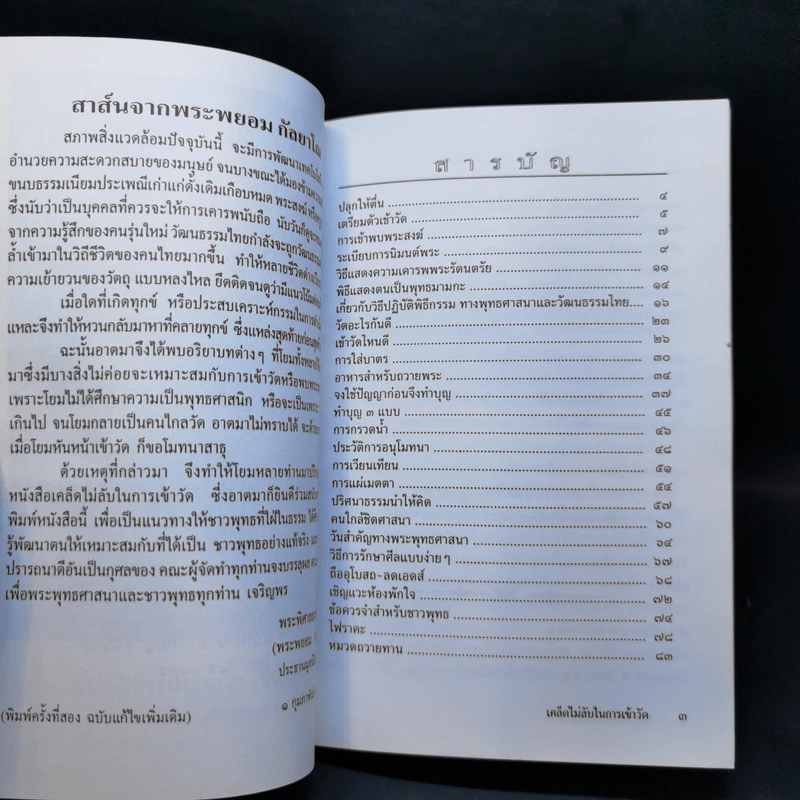 สาส์นจากพระพยอม กัลยาโณ
สภาพสิ่งแวดล้อมปัจจุบันนี้ จะมีการพัฒนาเทคโนโลยี
อำนวยความสะดวกสบายของมนุษย์ จนบางขณะได้มองข้าม
ขนบธรรมเนียมประเพณีเก่าแก่ดั้งเดิมเกือบหมด พระสงฆ์
ซึ่งนับว่าเป็นบุคคลที่ควรจะให้การเคารพนับถือ นับวันก็
จากความรู้สึกของคนรุ่นใหม่ วัฒนธรรมไทยกำลังจะถูก
ล้ำเข้ามาในวิถีชีวิตของคนไทยมากขึ้น ทำให้หลายชีวิต
ความเย้ายวนของวัตถุ แบบหลงใหล ยึดติดจนดูว่ามีแนวโน้ม
เมื่อใดที่เกิดทุกข์ หรือประสบเคราะห์กรรมในการ
แหละจึงทำให้หวนกลับมาหาที่คลายทุกข์ ซึ่งแหล่งสุดท้าย
ฉะนั้นอาตมาจึงได้พบอริยาบทต่างๆ ที่โยมทั้งหลาย
มาซึ่งมีบางสิ่งไม่ค่อยจะเหมาะสมกับการเข้าวัดหรือพบพระ
เพราะโยมไม่ได้ศึกษาความเป็นพุทธศาสนิก หรือจะเป็นเพราะ
เกินไป จนโยมกลายเป็นคนไกลวัด อาตมาไม่ทราบได้
เมื่อโยมหันหน้าเข้าวัด ก็ขอโมทนาสาธุ
ด้วยเหตุที่กล่าวมา จึงทำให้โยมหลายท่าน
หนังสือเคล็ดไม่ลับในการเข้าวัด ซึ่งอาตมาก็ยินดีร่วม
พิมพ์หนังสือนี้ เพื่อเป็นแนวทางให้ชาวพุทธที่ใฝ่ในธรรม
รู้พัฒนาตนให้เหมาะสมกับที่ได้เป็น ชาวพุทธอย่างแท้จริง
ปรารถนาดีอันเป็นกุศลของ คณะผู้จัดทำทุกท่านจงบรรลุผล
เพื่อพระพุทธศาสนาและชาวพุทธทุกท่าน เจริญพร
พระพิศาล
(พระพยอม
ประธานมูลนิธิ
๑ กุมภาพันธ์
(พิมพ์ครั้งที่สอง ฉบับแก้ไขเพิ่มเติม)
สารบัญ
ปลุกให้ตื่น ๔
เตรียมตัวเข้าวัด ๕
การเข้าพบพระสงฆ์ ๗
ระเบียบการนิมนต์พระ ๙
วิธีแสดงความเคารพพระรัตนตรัย ๑๑
พิธีแสดงตนเป็นพุทธมามกะ ๑๔
เกี่ยวกับวิธีปฏิบัติพิธีกรรม ทางพุทธศาสนาและวัฒนธรรมไทย ๑๖
วัดอะไรกันดี ๒๓
เข้าวัดไหนดี ๒๖
การใส่บาตร ๓๐
อาหารสำหรับถวายพระ ๓๔
จงใช้ปัญญาก่อนจึงทำบุญ ๓๗
ทำบุญ ๓ แบบ ๔๕
การกรวดน้ำ ๔๖
ประวัติการอนุโมทนา ๔๘
การเวียนเทียน ๕๑
การแผ่เมตตา ๕๕
ปริศนาธรรมนำให้คิด ๕๗
คนใกล้ชิดศาสนา ๖๐
วันสำคัญทางพระพุทธศาสนา ๖๔
วิธีการรักษาศีลแบบง่ายๆ ๖๗
ถืออุโบสถ-ลดเอดส์ ๖๘
เชิญแวะห้องพักใจ ๗๒
ข้อควรจำสำหรับชาวพุทธ ๗๔
ไฟราคะ ๗๘
หมวดถวายทาน ๘๓
เคล็ดไม่ลับในการเข้าวัด ๓